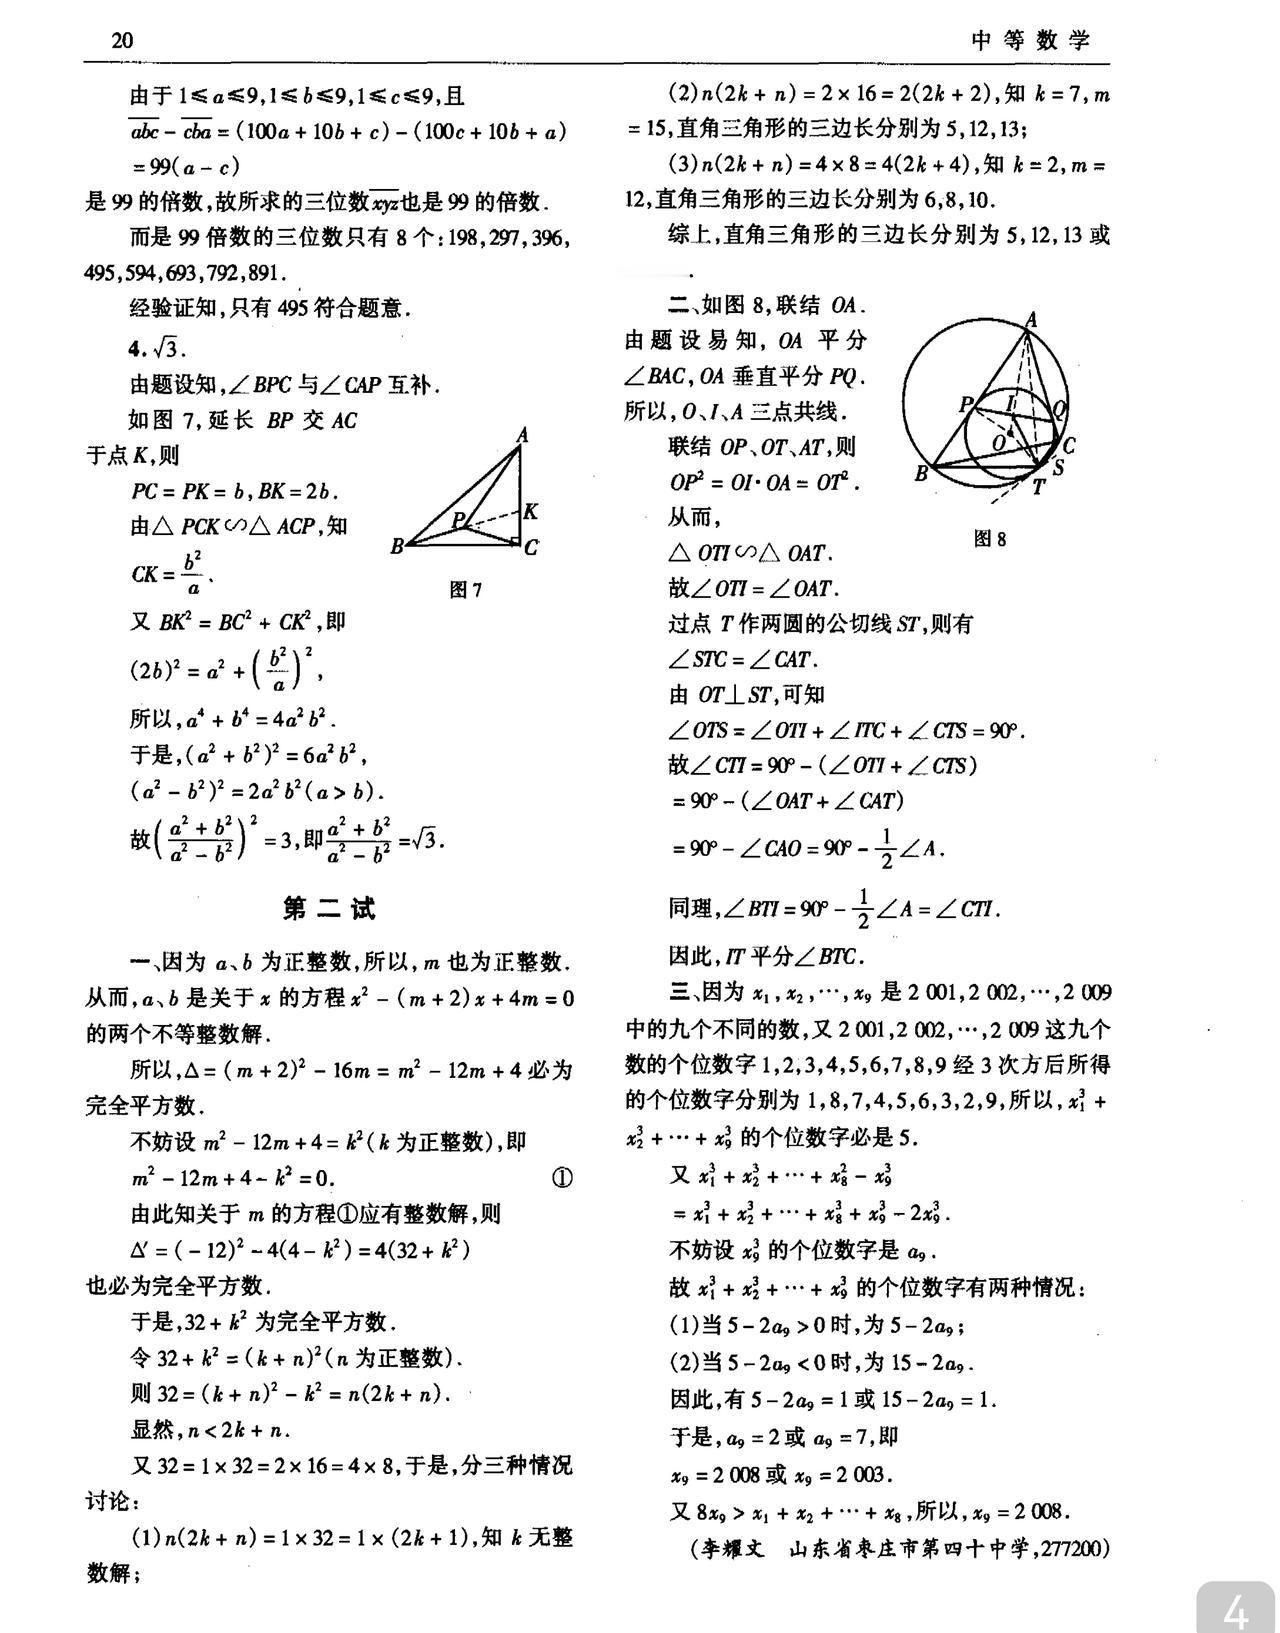 20
中等数学
由于1≤a≤9,1≤b≤9,1≤c≤9,且
abc - cba = (100a + 10b + c) - (100c + 10b + a)
= 99(a - c)
是99的倍数,故所求的三位数xyz也是99的倍数.
而是99倍数的三位数只有8个:198,297,396,
495,594,693,792,891.
经验证知,只有495符合题意.
4.√3.
由题设知,∠BPC与∠CAP互补.
如图7,延长 BP 交 AC
于点K,则
PC = PK = b,BK = 2b.
由△PCK∽△ACP,知
CK = b²/a.
又 BK² = BC² + CK²,即
(2b)² = a² + (b²/a)²,
所以,a⁴ + b⁴ = 4a²b².
于是,(a² + b²)² = 6a²b²,
(a² - b²)² = 2a²b²(a > b).
故((a² + b²)/(a² - b²))² = 3,即(a² + b²)/(a² - b²) = √3.
A
P
K
B
C
图7
第二试
一、因为 a、b 为正整数,所以,m 也为正整数.
从而,a、b 是关于 x 的方程 x² - (m + 2)x + 4m = 0
的两个不等整数解.
所以,Δ = (m + 2)² - 16m = m² - 12m + 4 必为
完全平方数.
不妨设 m² - 12m + 4 = k²(k 为正整数),即
m² - 12m + 4 - k² = 0. ①
由此知关于 m 的方程①应有整数解,则
Δ′ = (-12)² - 4(4 - k²) = 4(32 + k²)
也必为完全平方数.
于是,32 + k² 为完全平方数.
令 32 + k² = (k + n)²(n 为正整数).
则 32 = (k + n)² - k² = n(2k + n).
显然,n < 2k + n.
又 32 = 1×32 = 2×16 = 4×8,于是,分三种情况
讨论:
(1)n(2k + n) = 1×32 = 1×(2k + 1),知 k 无整
数解;
(2)n(2k + n) = 2×16 = 2(2k + 2),知 k = 7,m
= 15,直角三角形的三边长分别为5,12,13;
(3)n(2k + n) = 4×8 = 4(2k + 4),知 k = 2,m =
12,直角三角形的三边长分别为6,8,10.
综上,直角三角形的三边长分别为5,12,13或
.
二、如图8,联结 OA.
由题设易知,OA 平分
∠BAC,OA 垂直平分 PQ.
所以,O、I、A 三点共线.
联结 OP、OT、AT,则
OP² = OI·OA = OT².
从而,
△OTI∽△OAT.
故∠OTI = ∠OAT.
A
P
I
Q
O
C
B
S
T
图8
过点 T 作两圆的公切线 ST,则有
∠STC = ∠CAT.
由 OT⊥ST,可知
∠OTS = ∠OTI + ∠ITC + ∠CTS = 90°.
故∠CTI = 90° - (∠OTI + ∠CTS)
= 90° - (∠OAT + ∠CAT)
= 90° - ∠CAO = 90° - 1/2∠A.
同理,∠BTI = 90° - 1/2∠A = ∠CTI.
因此,IT 平分∠BTC.
三、因为 x₁,x₂,…,x₉ 是 2 001,2 002,…,2 009
中的九个不同的数,又 2 001,2 002,…,2 009 这九个
数的个位数字1,2,3,4,5,6,7,8,9经3次方后所得
的个位数字分别为1,8,7,4,5,6,3,2,9,所以,x₁³ +
x₂³ + … + x₉³ 的个位数字必是5.
又 x₁³ + x₂³ + … + x₈² - x₉³
= x₁³ + x₂³ + … + x₈³ + x₉³ - 2x₉³.
不妨设 x₉³ 的个位数字是 a₉.
故 x₁³ + x₂³ + … + x₉³ 的个位数字有两种情况:
(1)当 5 - 2a₉ > 0 时,为 5 - 2a₉;
(2)当 5 - 2a₉ < 0 时,为 15 - 2a₉.
因此,有 5 - 2a₉ = 1 或 15 - 2a₉ = 1.
于是,a₉ = 2 或 a₉ = 7,即
x₉ = 2 008 或 x₉ = 2 003.
又 8x₉ > x₁ + x₂ + … + x₈,所以,x₉ = 2 008.
(李耀文 山东省枣庄市第四十中学,277200)
4